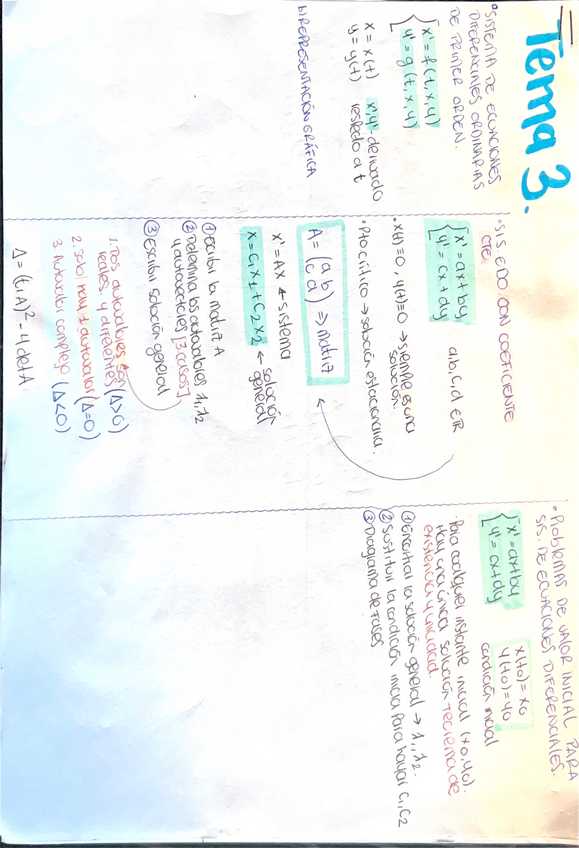 Tema 3.
• SISTEMA DE ECUACIONES
DIFERENCIALES ORDINARIAS
DE PRIMER ORDEN.
x' = f(t, x, y)
y' = g(t, x, y)
x = x(t) x', y' derivado
y = y(t) respecto a t
b) REPRESENTACIÓN GRÁFICA
• SIS. EDO CON COEFICIENTE
CTE
x' = ax + by
y' = cx + dy
a,b,c,d ∈ IR
• x(t) = 0, y(t) = 0 → siempre es una
solución.
• Pto crítico → solución estacionaria.
A = (a b
c d) ⇒ matriz
x' = AX ← sistema
x = C₁X₁ + C₂X₂ ← solución
general
① Escribir la matriz A
② Determina los autovalores λ₁, λ₂
y autovectores [3 casos]
③ Escribir solución general
1. Dos autovalores son
reales y diferentes (Δ>0)
2. Solo hay 1 autovalor (Δ=0)
3. Autovalor complejo (Δ<0)
Δ = (tr A)² - 4 det A
• Problemas DE VALOR INICIAL PARA
SIS. DE ECUACIONES DIFERENCIALES.
x' = ax + by
y' = cx + dy
x(t0) = x0
y(t0) = y0
condición inicial
• Para cualquier instante inicial (x0, y0).
Hay una única solución Teorema de
existencia y unicidad.
① Encontrar la solución general → λ₁, λ₂.
② Sustituir la condición inicial para hayar C₁, C₂
③ Diagrama de fases